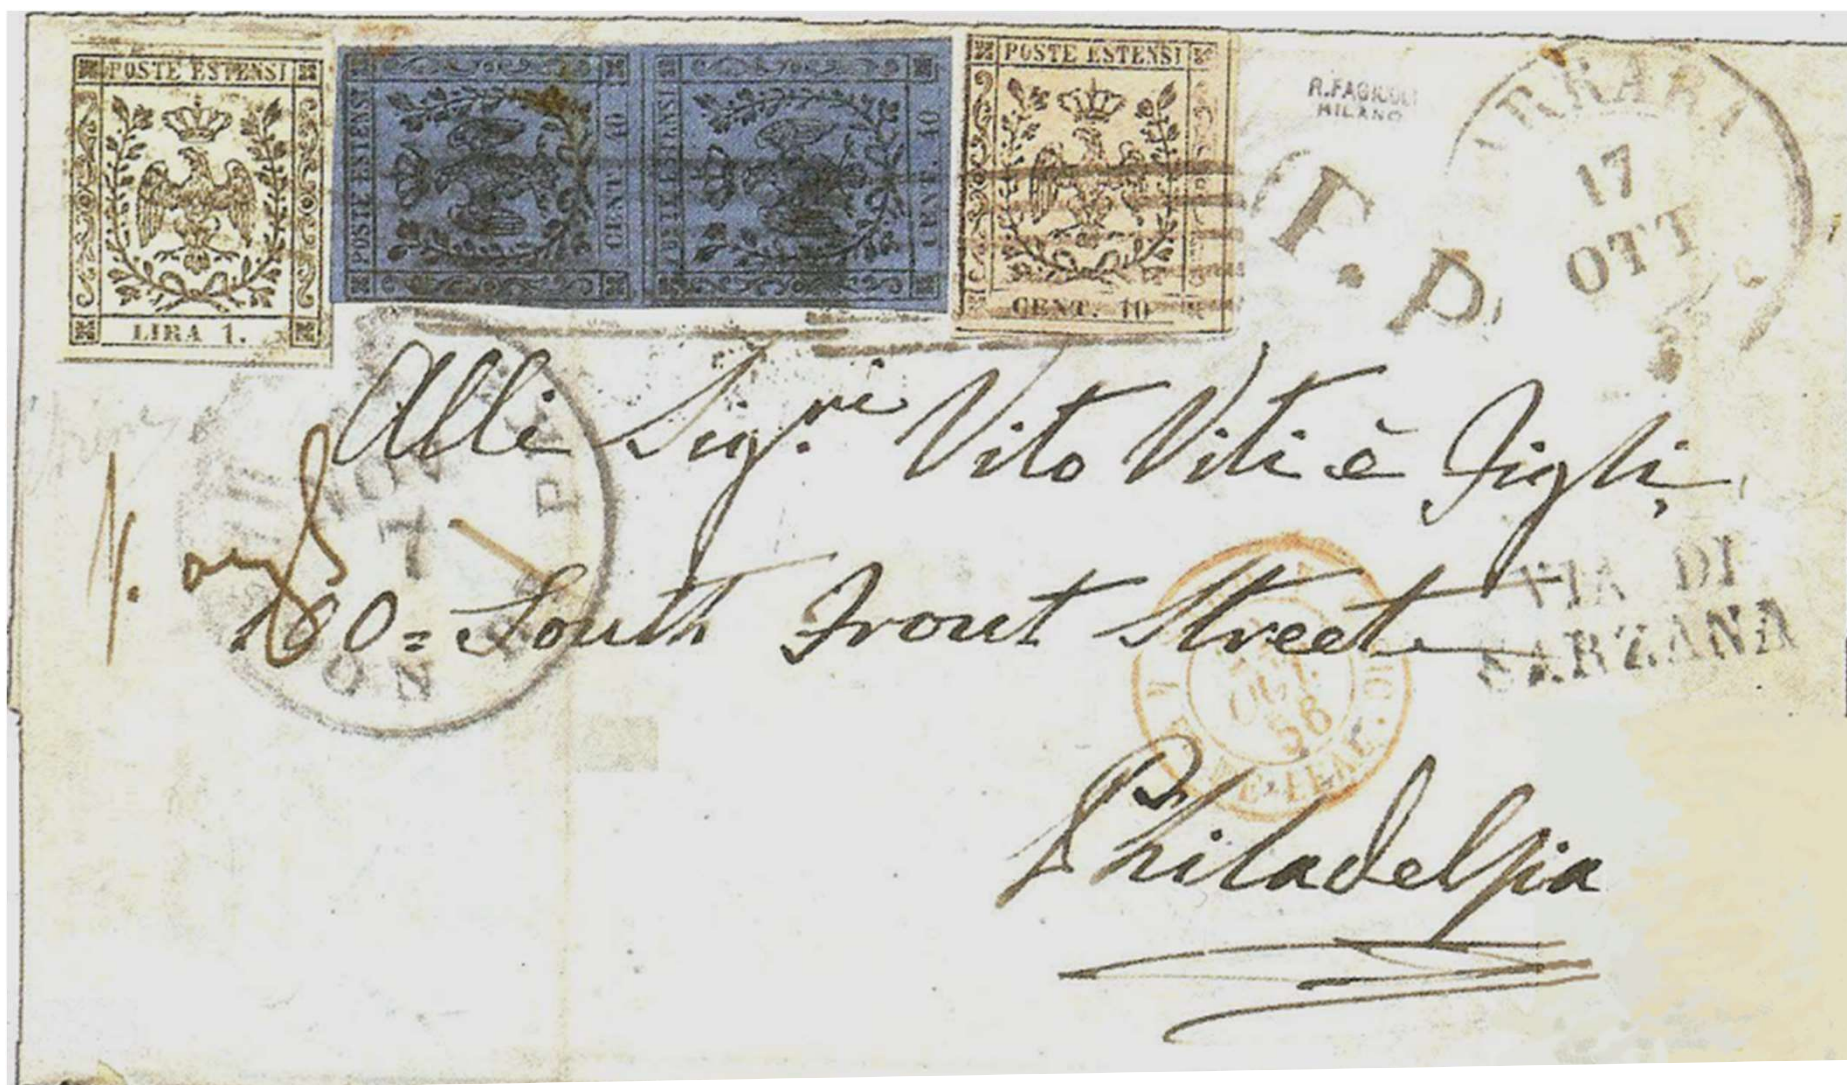 POSTE ESTENSI
LIRA 1.
POSTE ESTENSI
CENT. 40
POSTE ESTENSI
CENT. 40
POSTE ESTENSI
CENT. 10
R.FAGIUOLI
MILANO
P.P.
CARRARA
17
OTT
Alli Sig.ri Vito Viti è Figli,
NOV
7
BOSTON
100= South Front Street
VIA DI
SARZANA
OCT.
56
Philadelpia